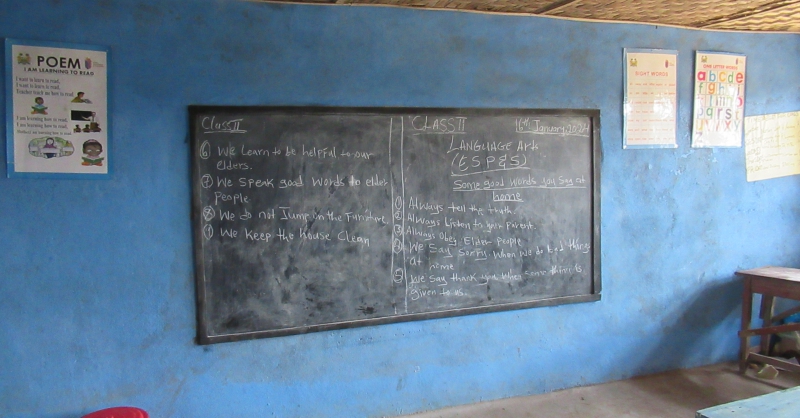 POEM
I AM LEARNING TO READ
I want to learn to read,
I want to learn to read,
Teacher teach me how to read
I am learning how to read,
I am learning how to read,
Class II
⑥ We Learn to be helpful to our
elders.
⑦ We Speak good words to elder
people
⑧ We do not Jump on the Furniture
⑨ We keep the house Clean
CLASS II
16th January, 2024
LANGUAGE Art
(ES P&S)
Some good words you Say at
home
① Always tell the truth.
② Always Listen to your Parent.
③ Always Obey Elder people
④ We Say Sorry When we do bad things
at home
⑤ We say thank you when some thing is
given to us.
SIGHT WORDS
a b c d e
f g h i j